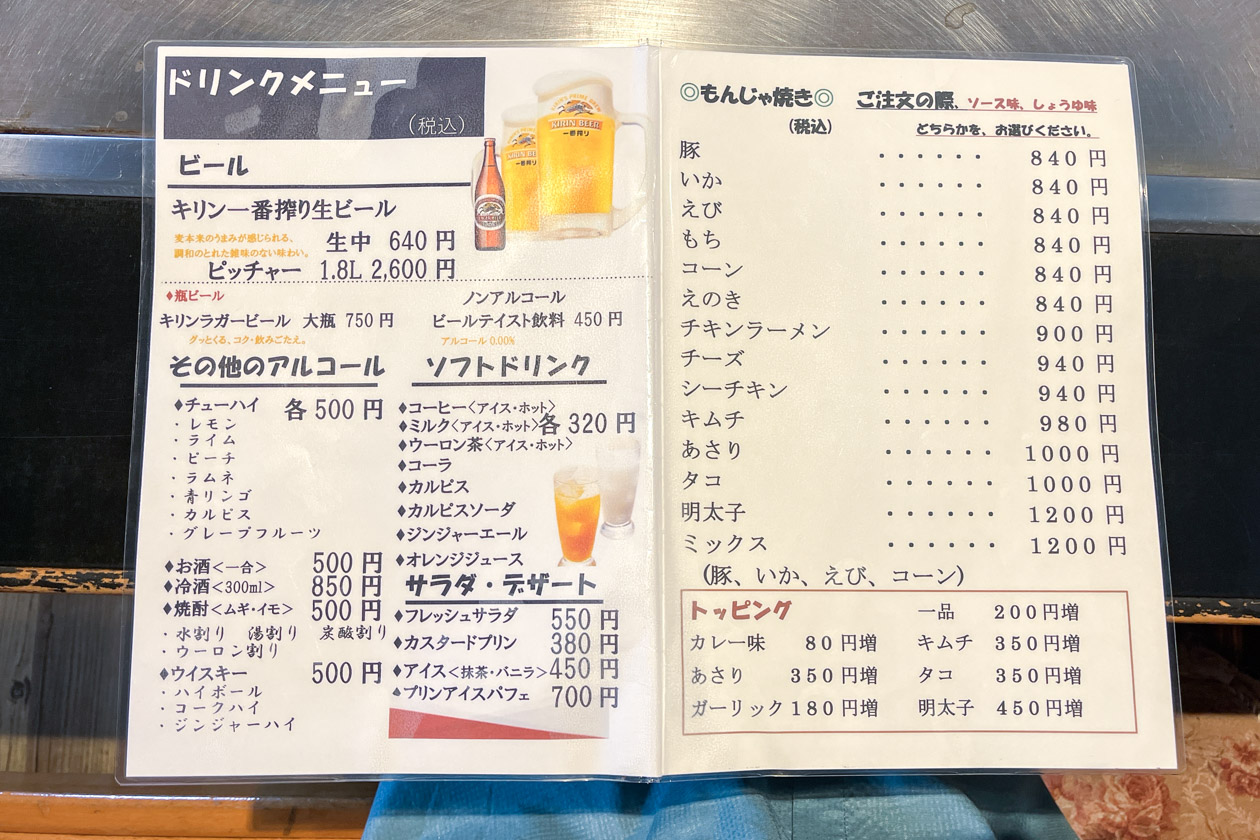 ドリンクメニュー
(税込)
ビール
キリン一番搾り生ビール
麦本来のうまみが感じられる、
調和のとれた雑味のない味わい。
生中 640 円
ピッチャー 1.8L 2,600 円
♦瓶ビール
キリンラガービール 大瓶 750 円
グッとくる、コク・飲みごたえ。
ノンアルコール
ビールテイスト飲料 450 円
アルコール 0.00%
KIRIN BEER
一番搾り
KIRIN BEER
一番搾り
その他のアルコール
♦チューハイ 各 500 円
・レモン
・ライム
・ピーチ
・ラムネ
・青リンゴ
・カルピス
・グレープフルーツ
♦お酒<一合> 500 円
♦冷酒<300ml> 850 円
♦焼酎<ムギ・イモ> 500 円
・水割り 湯割り 炭酸割り
・ウーロン割り
♦ウイスキー 500 円
・ハイボール
・コークハイ
・ジンジャーハイ
ソフトドリンク
♦コーヒー<アイス・ホット>
♦ミルク<アイス・ホット>各 320 円
♦ウーロン茶<アイス・ホット>
♦コーラ
♦カルピス
♦カルピスソーダ
♦ジンジャーエール
♦オレンジジュース
サラダ・デザート
♦フレッシュサラダ 550 円
♦カスタードプリン 380 円
♦アイス<抹茶・バニラ>450 円
♦プリンアイスパフェ 700 円
◎もんじゃ焼き◎ ご注文の際、ソース味、しょうゆ味
(税込) どちらかを、お選びください。
豚 ・・・・・・ 840 円
いか ・・・・・・ 840 円
えび ・・・・・・ 840 円
もち ・・・・・・ 840 円
コーン ・・・・・・ 840 円
えのき ・・・・・・ 840 円
チキンラーメン ・・・・・・ 900 円
チーズ ・・・・・・ 940 円
シーチキン ・・・・・・ 940 円
キムチ ・・・・・・ 980 円
あさり ・・・・・・ 1000 円
タコ ・・・・・・ 1000 円
明太子 ・・・・・・ 1200 円
ミックス ・・・・・・ 1200 円
(豚、いか、えび、コーン)
トッピング 一品 200円増
カレー味 80円増 キムチ 350円増
あさり 350円増 タコ 350円増
ガーリック 180円増 明太子 450円増